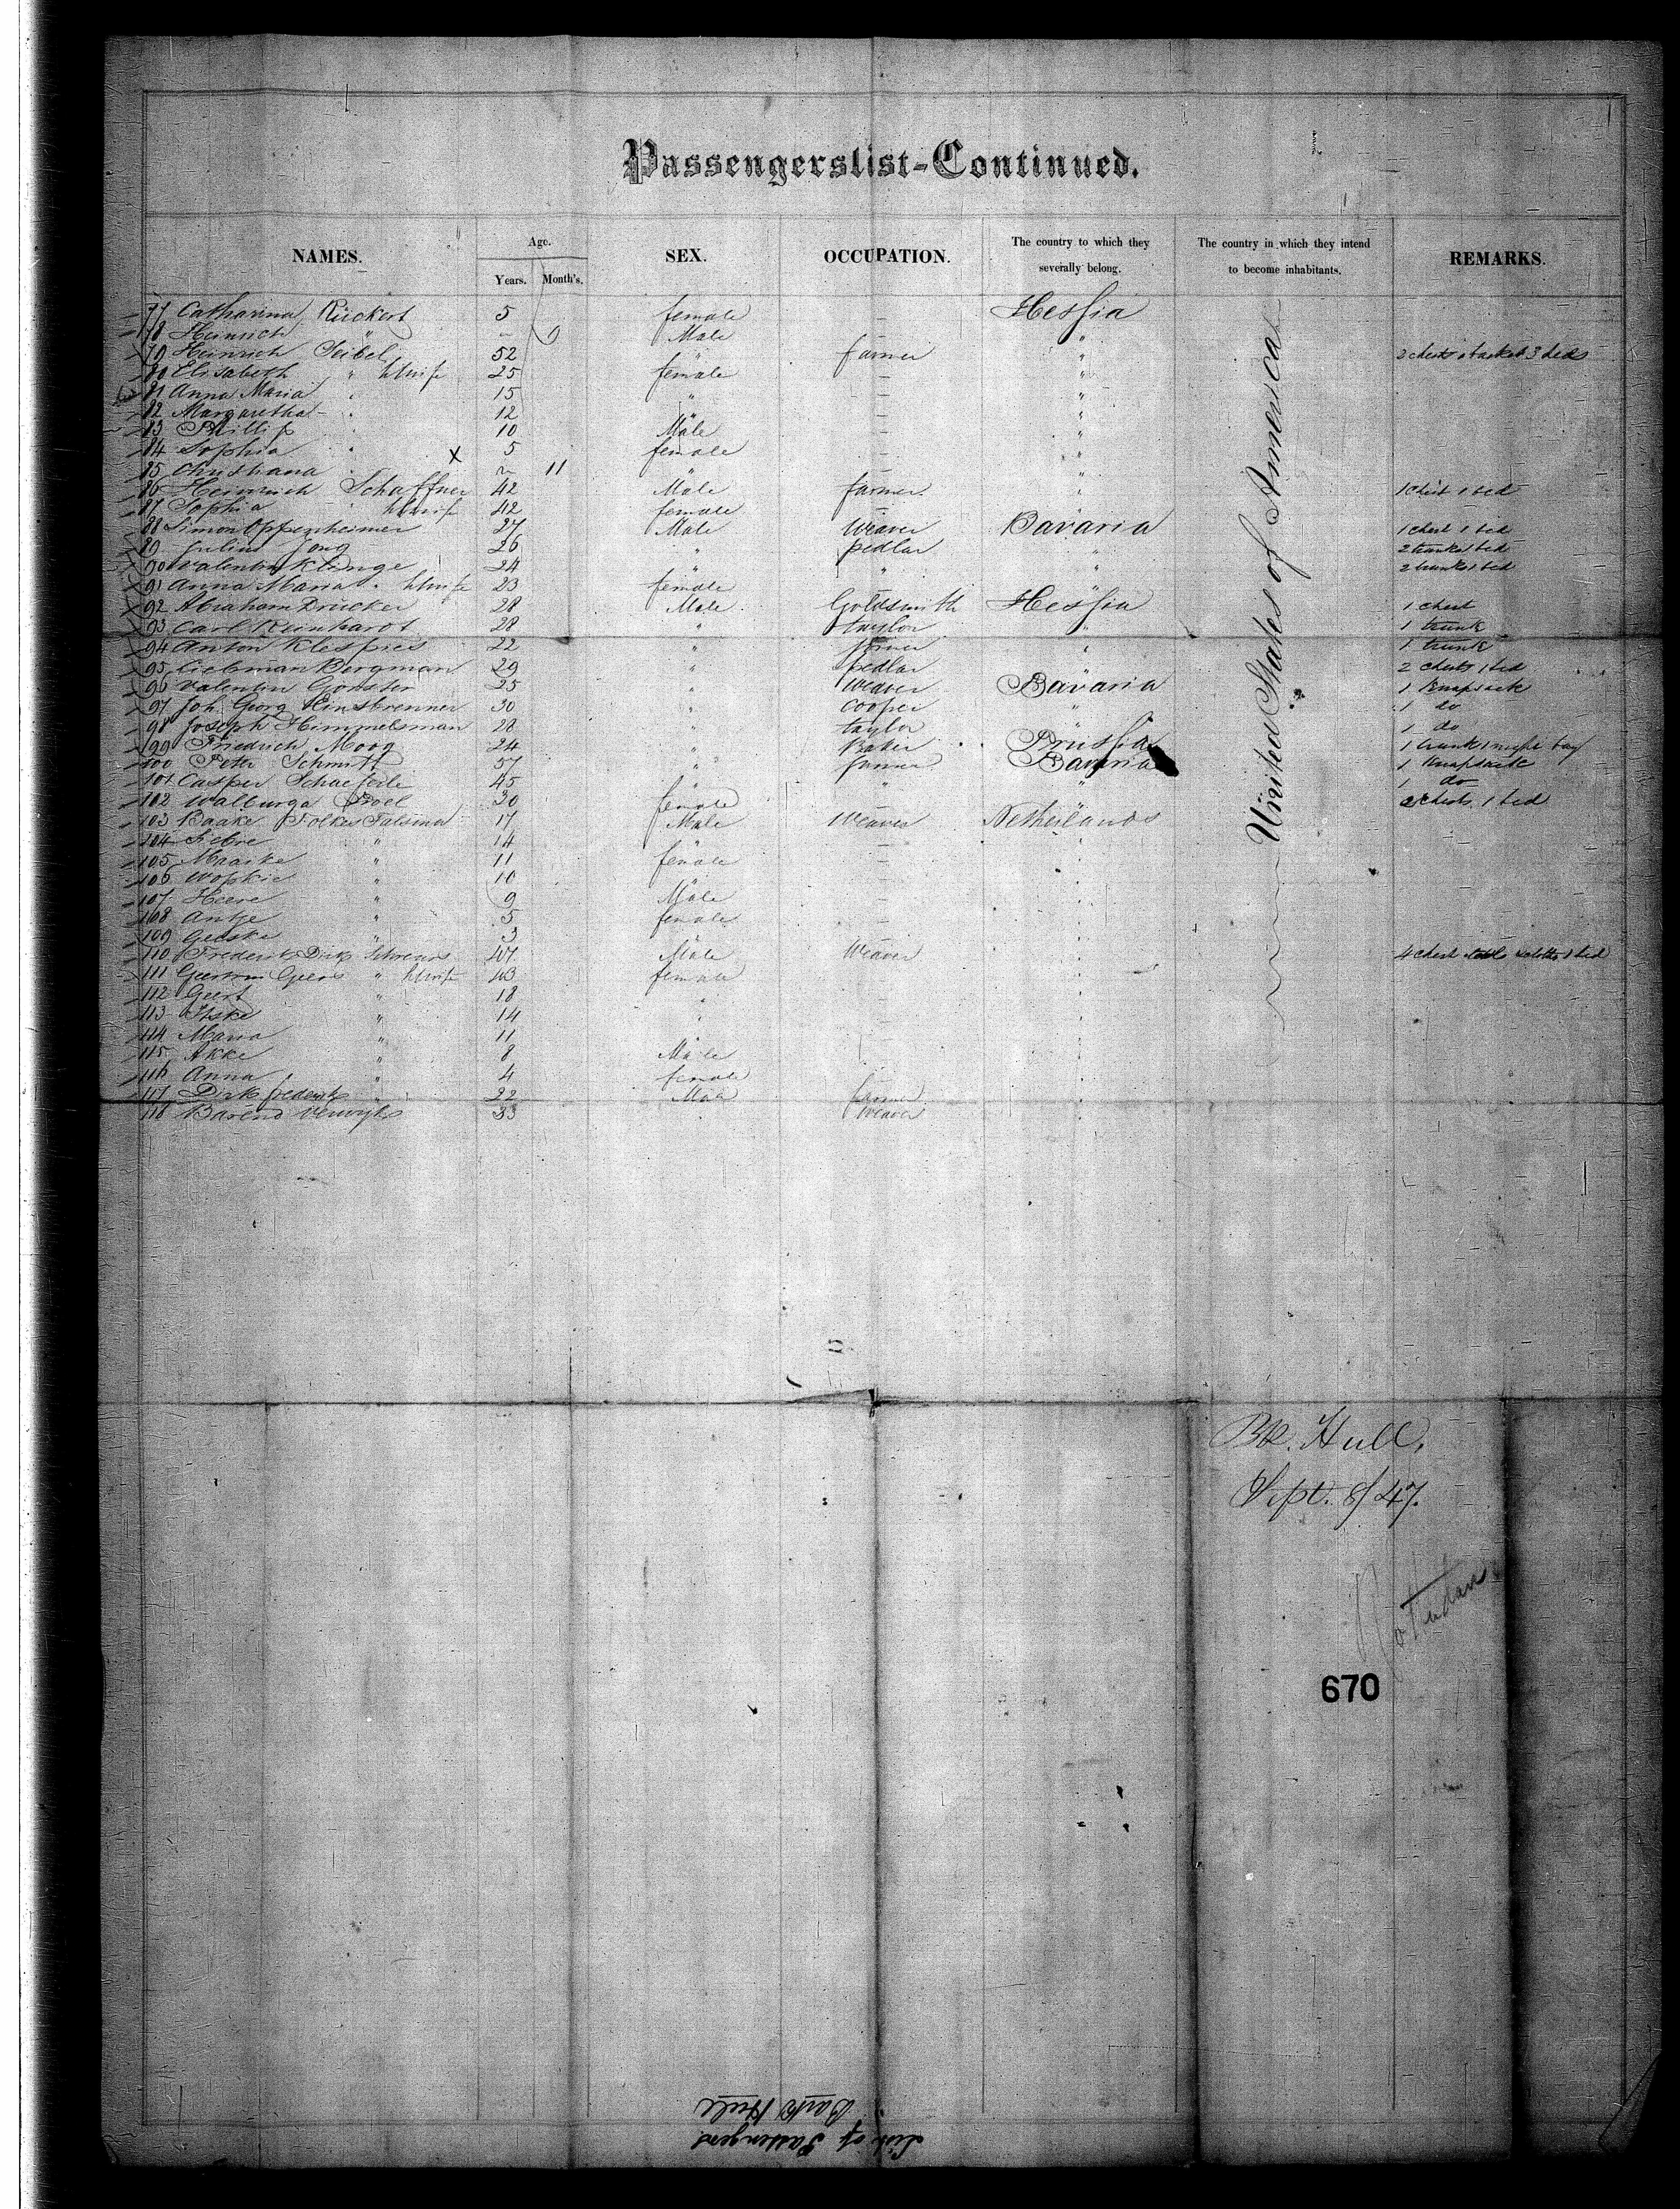 Passengerslist-Continued.
NAMES. Age. SEX. OCCUPATION. The country to which they severally belong. The country in which they intend to become inhabitants. REMARKS.
Years. Month's.
77 Catharina Rückert 5 female – Hessia
78 Heinrich " – 9 Male – "
79 Heinrich Seibel 52 " farmer " 2 chests 1 basket 3 beds
80 Elisabeth " h Wife 25 female – "
81 Anna Maria " 15 " – "
82 Margaretha " 12 " – "
83 Phillip " 10 Male – "
84 Sophia " 5 female – "
85 Christiana " x – 11 " – "
86 Heinrich Schaffner 42 Male farmer " 1 chest 1 bed
87 Sophia " h Wife 42 female
88 Simon Oppenheimer 27 Male Weaver Bavaria 1 chest 1 bed
89 Julius Jong 26 " pedlar " 2 trunks 1 bed
90 Valentin Klinge 24 " " " 2 trunks 1 bed
91 Anna Maria " h Wife 23 female
92 Abraham Drucker 28 Male Goldsmith Hessia 1 chest
93 Carl Reinhardt 28 " taylor " 1 trunk
94 Anton Klespies 22 " " 1 trunk
95 Liebman Bergman 29 " pedlar " 2 chests 1 bed
96 Valentin 25 " Weaver Bavaria 1 Knapsack
97 Joh. Georg Hinsbrenner 30 " Cooper " 1 do
98 Joseph Himmelsman 28 " taylor " 1 do
99 Friedrich Moog 24 " Baker Prussia 1 trunk 1 night bag
100 Peter Schmitt 57 " farmer Bavaria 1 Knapsack
101 Casper Schaeferle 45 " " " 1 do
102 Walburga 30 female " 2 chests 1 bed
103 Baake Folkes Talsma 17 Male Weaver Netherlands
104 Siebre " 14 "
105 Maaike " 11 female –
106 Wopkie " 10 " –
107 Heere " 9 Male –
108 Antje " 5 female –
109 Geeske " 3 "
110 Frederik Dirk 47 Male Weaver 4 chest 1 bed
111 Geers " h Wife 43 female
112 Geert " 18 " –
113 " 14 " –
114 Maria " 11
115 Akke " 8 Male
116 Anna " 4 female
117 Dirk frederik " 22 Male farmer
118 Barend Verwijk 33 " Weaver
United States of America
Bk. Hull.
Sept. 8/47.
Rotterdam
670
List of Passengers
Bark Hull